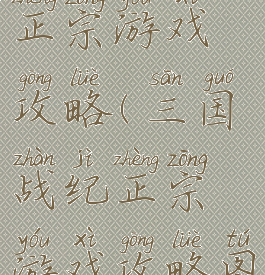 zhèng zōng yóu xì
正宗游戏
gōng lüè sān guó
攻略(三国
zhàn jì zhèng zōng
战纪正宗
yóu xì gōng lüè tú
游戏攻略图